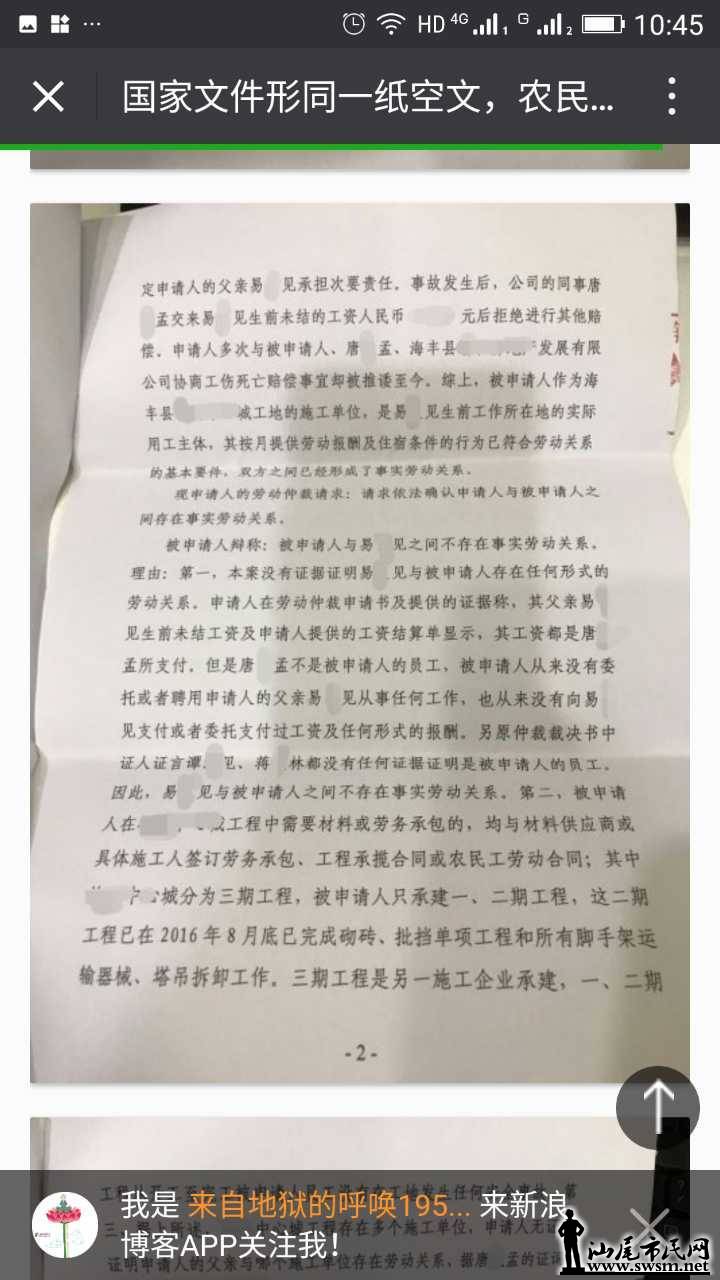 HD 4G 1 G 2 10:45
国家文件形同一纸空文，农民...
定申请人的父亲易 见承担次要责任。事故发生后，公司的同事唐
孟交来易 见生前未结的工资人民币 元后拒绝进行其他赔
偿。申请人多次与被申请人、唐 孟、海丰县 发展有限
公司协商工伤死亡赔偿事宜却被推诿至今。综上，被申请人作为海
丰县 城工地的施工单位，是易 见生前工作所在地的实际
用工主体，其按月提供劳动报酬及住宿条件的行为已符合劳动关系
的基本要件，双方之间已经形成了事实劳动关系。
现申请人的劳动仲裁请求：请求依法确认申请人与被申请人之
间存在事实劳动关系。
被申请人辩称：被申请人与易 见之间不存在事实劳动关系。
理由：第一，本案没有证据证明易 见与被申请人存在任何形式的
劳动关系。申请人在劳动仲裁申请书及提供的证据称，其父亲易
见生前未结工资及申请人提供的工资结算单显示，其工资都是唐
孟所支付。但是唐 孟不是被申请人的员工，被申请人从来没有委
托或者聘用申请人的父亲易 见从事任何工作，也从来没有向易
见支付或者委托支付过工资及任何形式的报酬。另原仲裁裁决书中
证人证言谭 见、蒋 林都没有任何证据证明是被申请人的员工。
因此，易 见与被申请人之间不存在事实劳动关系。第二，被申请
人在 城工程中需要材料或劳务承包的，均与材料供应商或
具体施工人签订劳务承包、工程承揽合同或农民工劳动合同；其中
中心城分为三期工程，被申请人只承建一、二期工程，这二期
工程已在 2016 年 8 月底已完成砌砖、批挡单项工程和所有脚手架运
输器械、塔吊拆卸工作。三期工程是另一施工企业承建，一、二期
- 2 -
我是 来自地狱的呼唤195... 来新浪
博客APP关注我！
中心城工程存在多个施工单位，申请人无证
证明申请人的父亲与哪个施工单位存在劳动关系，据唐 孟的证
汕尾市民网
www.swsm.net